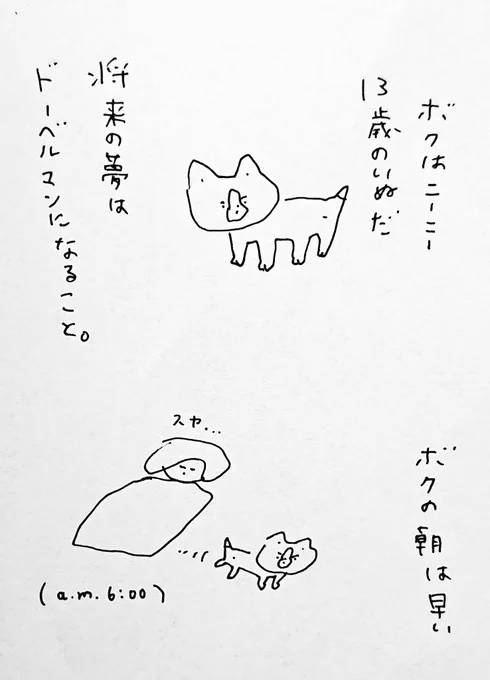 ボクはニーニー
13歳のいぬだ
将来の夢は
ドーベルマンになること。
ボクの朝は早い
スヤ...
(a.m.6:00)